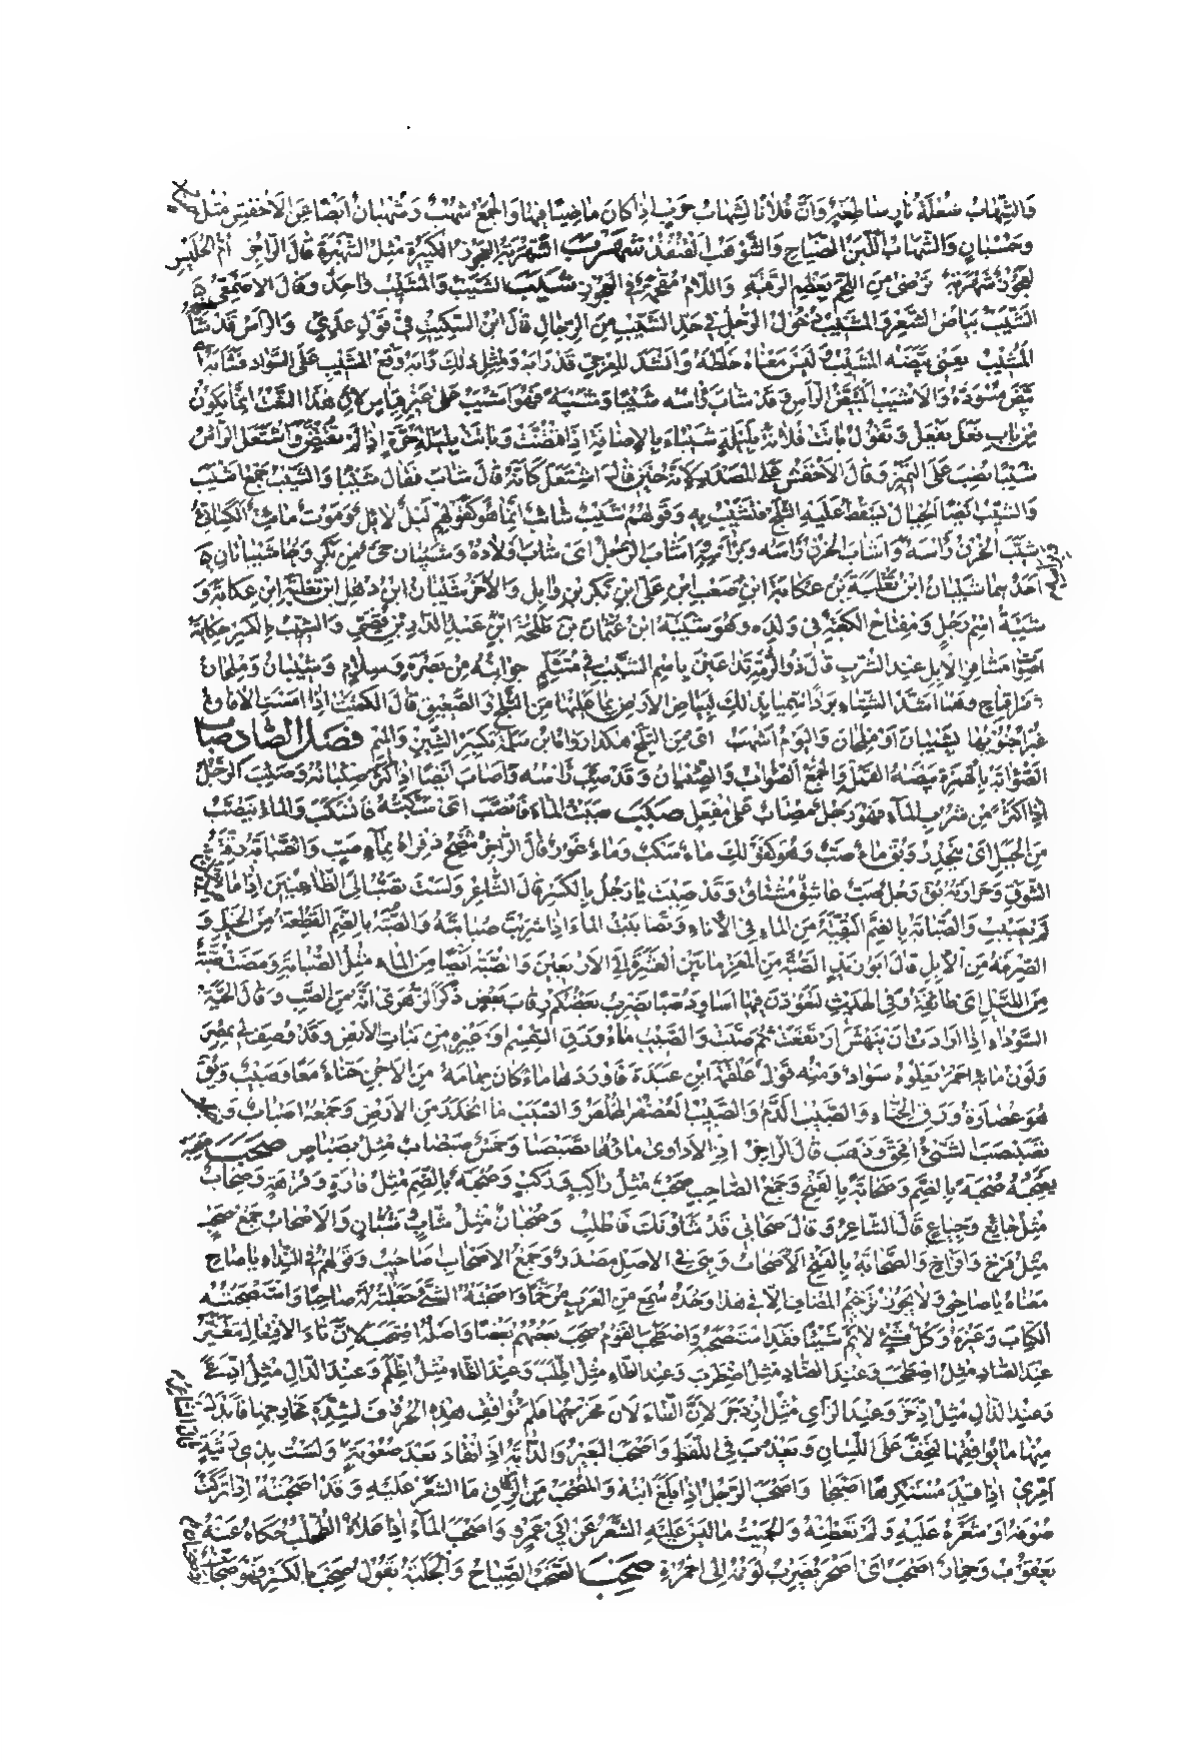 والشهاب شعلة نار ساطعة وان فلانا لشهاب حرب اذا كان ماضيا فيها والجمع شهب وشهبان ايضا عن الاخفش مثل
وحسبان والشهاب اللبن الضياح والشوهب القنفذ شهرب الشهربة العجوز الكبيرة مثل الشهبرة قال الراجز ام الحليس
لعجوز شهربه ترضى من اللحم بعظم الرقبه واللام مقحمة في العجوز شيب الشيب والمشيب واحد وقال الاصمعي
الشيب بياض الشعر والمشيب دخول الرجل في حد الشيب من الرجال قال ابن السكيت في قول عدي والراس قد شابه
المشيب يعني بيضه المشيب ليس معناه خالطه وانشد قد رابه ولمثل ذلك رابه وقع المشيب على السواد فشابه
مسودة والاشيب المبيض الراس وقد شاب راسه شيبا وشيبة فهو اشيب على غير قياس لان هذا النعت انما يكون
من باب فعل يفعل وتقول باتت فلانة بليلة شيباء بالاضافة اذا افتضت وباتت بليلة حرة اذا لم تفتض واشتعل الراس
شيبا نصب على التمييز وقال الاخفش على المصدر لانه حين قال اشتعل كانه قال شاب فقال شيبا والشيب جمع اشيب
والشيب ايضا الجبال يسقط عليها الثلج فتشيب به وقولهم شيب شائب انما هو كقولهم ليل لائل وموت مائت الكسائي
شيب الحزن راسه واشاب الحزن راسه وبراسه واشاب الرجل اي شاب اولاده وشيبان حي من بكر وهما شيبانان
احدهما شيبان ابن ثعلبة بن عكابة ابن صعب ابن علي ابن بكر بن وايل والاخر شيبان ابن ذهل ابن ثعلبة ابن عكابة و
شيبة اسم رجل ومفتاح الكعبة في ولده وهو شيبة ابن عثمان بن طلحة ابن عبد الدار بن قصي والشيب بالكسر حكاية
اصوات مشافر الابل عند الشرب قال ذو الرمة تداعين باسم الشيب في متثلم جوانبه من بصرة وسلام وشيبان وملحان
شهرا قماح وهما اشد الشتاء بردا سميا بذلك لبياض الارض بما عليها من الثلج والصقيع قال الكميت اذا امست الافاق
غبرا جنوبها بشيبان او ملحان واليوم اشهب اي من الثلج هكذا رواه ابن سلمة بكسر الشين والميم فصل الصاد صاب
الصؤابة بالهمزة بيضة القمل والجمع الصؤاب والصئبان وقد صئب راسه واصاب ايضا اذا كثر صئبانه وصئب الرجل
اذا اكثر من شرب الماء فهو رجل مصاب على مفعل صبب صببت الماء فانصب اي سكبته فانسكب والماء يتصبب
من الجبل اي يتحدر ويقال ماء صب وهو كقولك ماء سكب وماء غور قال الراجز تنضح ذفراه بماء صب والصبابة رقة
الشوق وحرارته يقال رجل صب عاشق مشتاق وقد صببت يا رجل بالكسر قال الشاعر ولست تصب الى الظاعنين اذا ما
لم يصبب والصبابة بالضم البقية من الماء في الاناء وتصاببت الماء اذا شربت صبابته والصبة بالضم القطعة من الخيل و
الصرمة من الابل قال ابو زيد الصبة من المعز ما بين العشرة الى الاربعين والصبة ايضا من الماء مثل الصبابة ومضت صبة
من الليل اي طائفة وفي الحديث لتعودن فيها اساود صبا يضرب بعضكم رقاب بعض ذكر الزهري انه من الصب وقال الحية
السوداء اذا ارادت ان تنهش ارتفعت ثم صبت والصبيب ماء ورق السمسم وغيره من نبات الارض وقد وصف لي بمصر
ولون مائه احمر يعلوه سواد ومنه قول علقمة ابن عبدة فاوردها ماء كان جمامه من الاجن حناء معا وصبيب ويقال
هو عصارة ورق الحناء والصبيب الدم والصبيب العصفر المخلص والصبب ما انحدر من الارض وجمعه اصباب و
تصبصب الشيء امحق وذهب قال الراجز اذا الاداوى ماؤها تصبصبا وخمس صبصاب مثل بصباص صحب صحبه
يصحبه صحبة بالضم وصحابة بالفتح وجمع الصاحب صحب مثل راكب وركب وصحبة بالضم مثل فاره وفرهة وصحاب
مثل جائع وجياع قال الشاعر وقال صحابي قد شاونك فاطلب وصحبان مثل شاب وشبان والاصحاب جمع صحب
مثل فرخ وافراخ والصحابة بالفتح الاصحاب وهي في الاصل مصدر وجمع الاصحاب اصاحيب وقولهم في النداء يا صاح
معناه يا صاحبي ولا يجوز ترخيم المضاف الا في هذا وحده سمع من العرب مرخما واصحبته الشيء جعلته له صاحبا واستصحبته
الكتاب وغيره وكل شيء لايم شيئا فقد استصحبه واصطحب القوم صحب بعضهم بعضا واصله اصتحب لان تاء الافتعال تتغير
عند الصاد مثل اصطحب وعند الضاد مثل اضطرب وعند الطاء مثل اطلب وعند الظاء مثل اظلم وعند الدال مثل ادعى
وعند الذال مثل اذخر وعند الزاي مثل ازدجر لان التاء لان مخرجها فلم توافق هذه الحروف لشدة مخارجها فابدل
منها ما يوافقها ليخف على اللسان ويعذب في اللفظ واصحب البعير والدابة اذا انقاد بعد صعوبة ولست بذي رثية
امري اذا قيد مستكرها اصحبا واصحب الرجل اذا بلغ ابنه والمصحب من الزق ما الشعر عليه وقد اصحبته اذا تركت
صوفه او شعره عليه ولم تعطنه والحميت ما ليس عليه الشعر عن ابي عمرو واصحب الماء اذا علاه الطحلب حكاه عنه
يعقوب وحمار اصحب اي اصحر يضرب لونه الى الحمرة صخب الصخب الصياح والجلبة تقول صخب بالكسر فهو صخاب